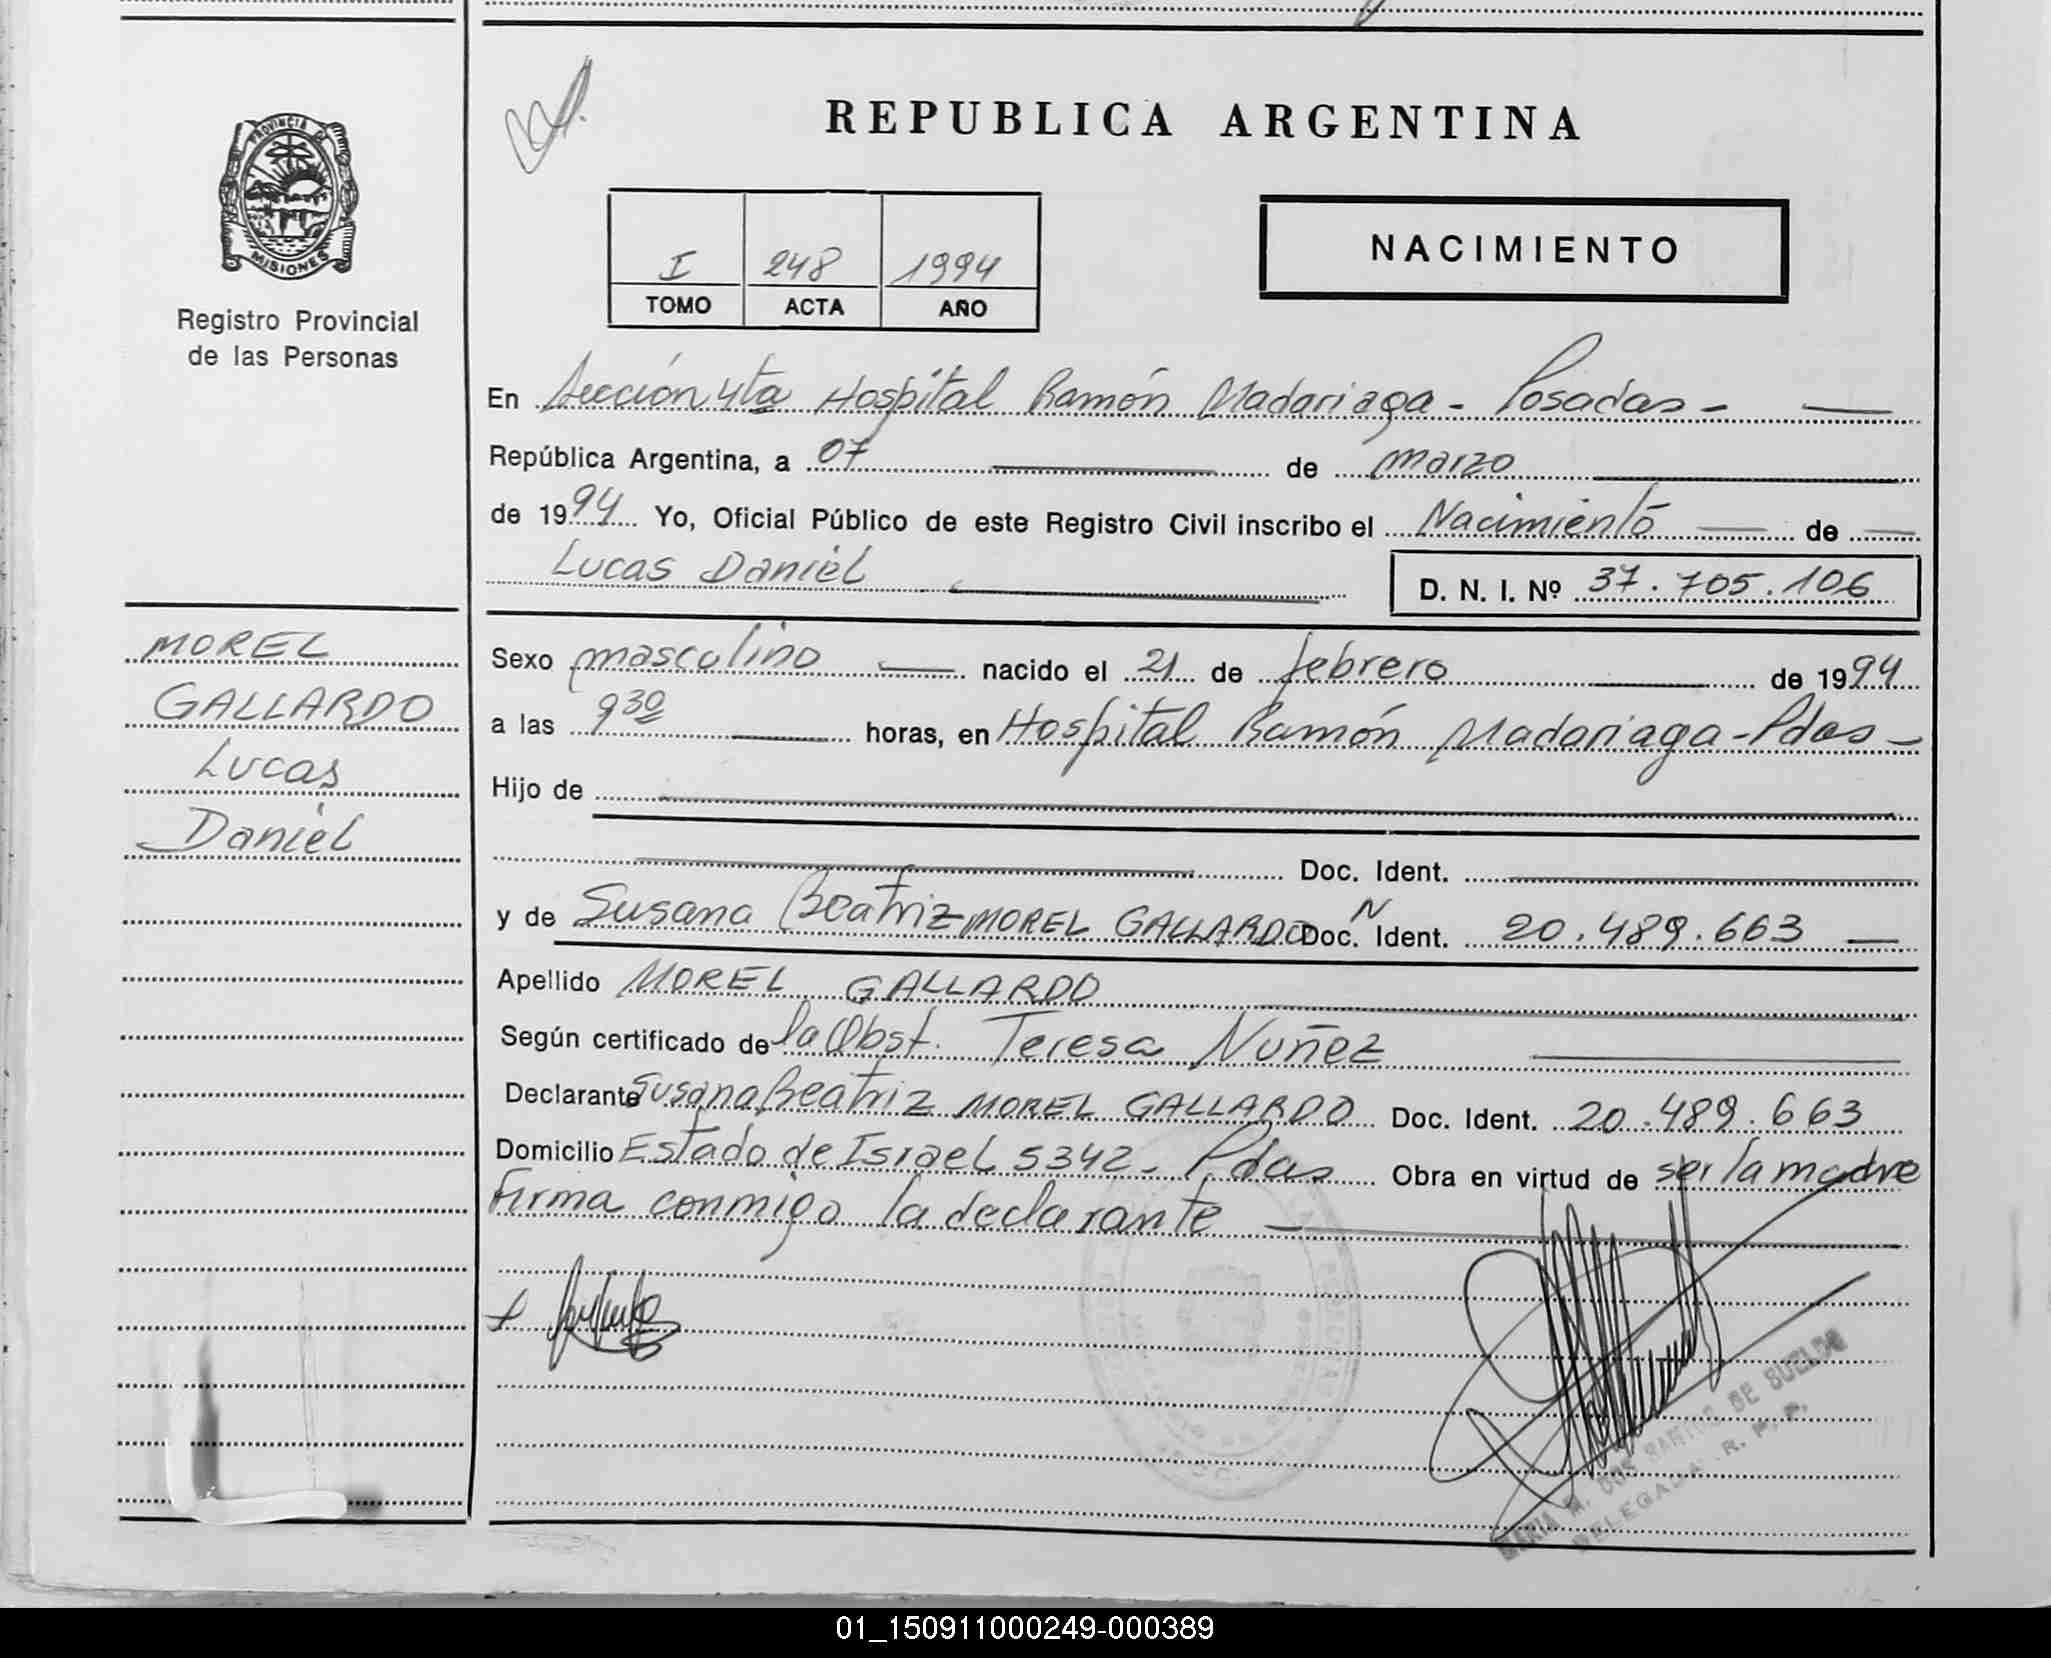 REPUBLICA ARGENTINA
PROVINCIA D
MISIONES
Registro Provincial
de las Personas
I 248 1994
TOMO ACTA AÑO
NACIMIENTO
En Sección 4ta Hospital Ramón Madariaga - Posadas -
República Argentina, a 07 de marzo
de 1994 Yo, Oficial Público de este Registro Civil inscribo el Nacimiento de
Lucas Daniel D. N. I. Nº 37.705.106
MOREL
GALLARDO
Lucas
Daniel
Sexo masculino nacido el 21 de febrero de 1994
a las 9 30 horas, en Hospital Ramón Madariaga - Pdas -
Hijo de
Doc. Ident.
y de Susana Beatriz MOREL GALLARDO Doc. N Ident. 20.489.663
Apellido MOREL GALLARDO
Según certificado de la Obst. Teresa Nuñez
Declarante Susana Beatriz MOREL GALLARDO Doc. Ident. 20.489.663
Domicilio Estado de Israel 5342 - Pdas Obra en virtud de ser la madre
firma conmigo la declarante
MARIA M. DOS SANTOS DE SUELDO
DELEGADA R. P. P.
01_150911000249-000389